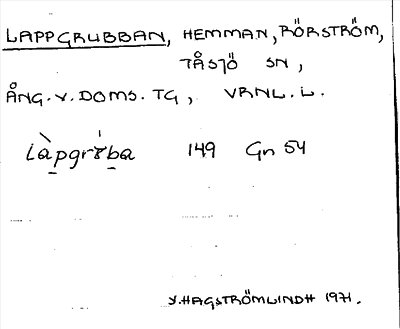 LAPPGRUBBAN, HEMMAN, RÖRSTRÖM,
TÅSJÖ SN,
ÅNG.V.DOMS.TG, VRNL.L.
làp̱grɤ́ḇa 149 Gn 54
Y.HAGSTRÖMLINDH 1971.